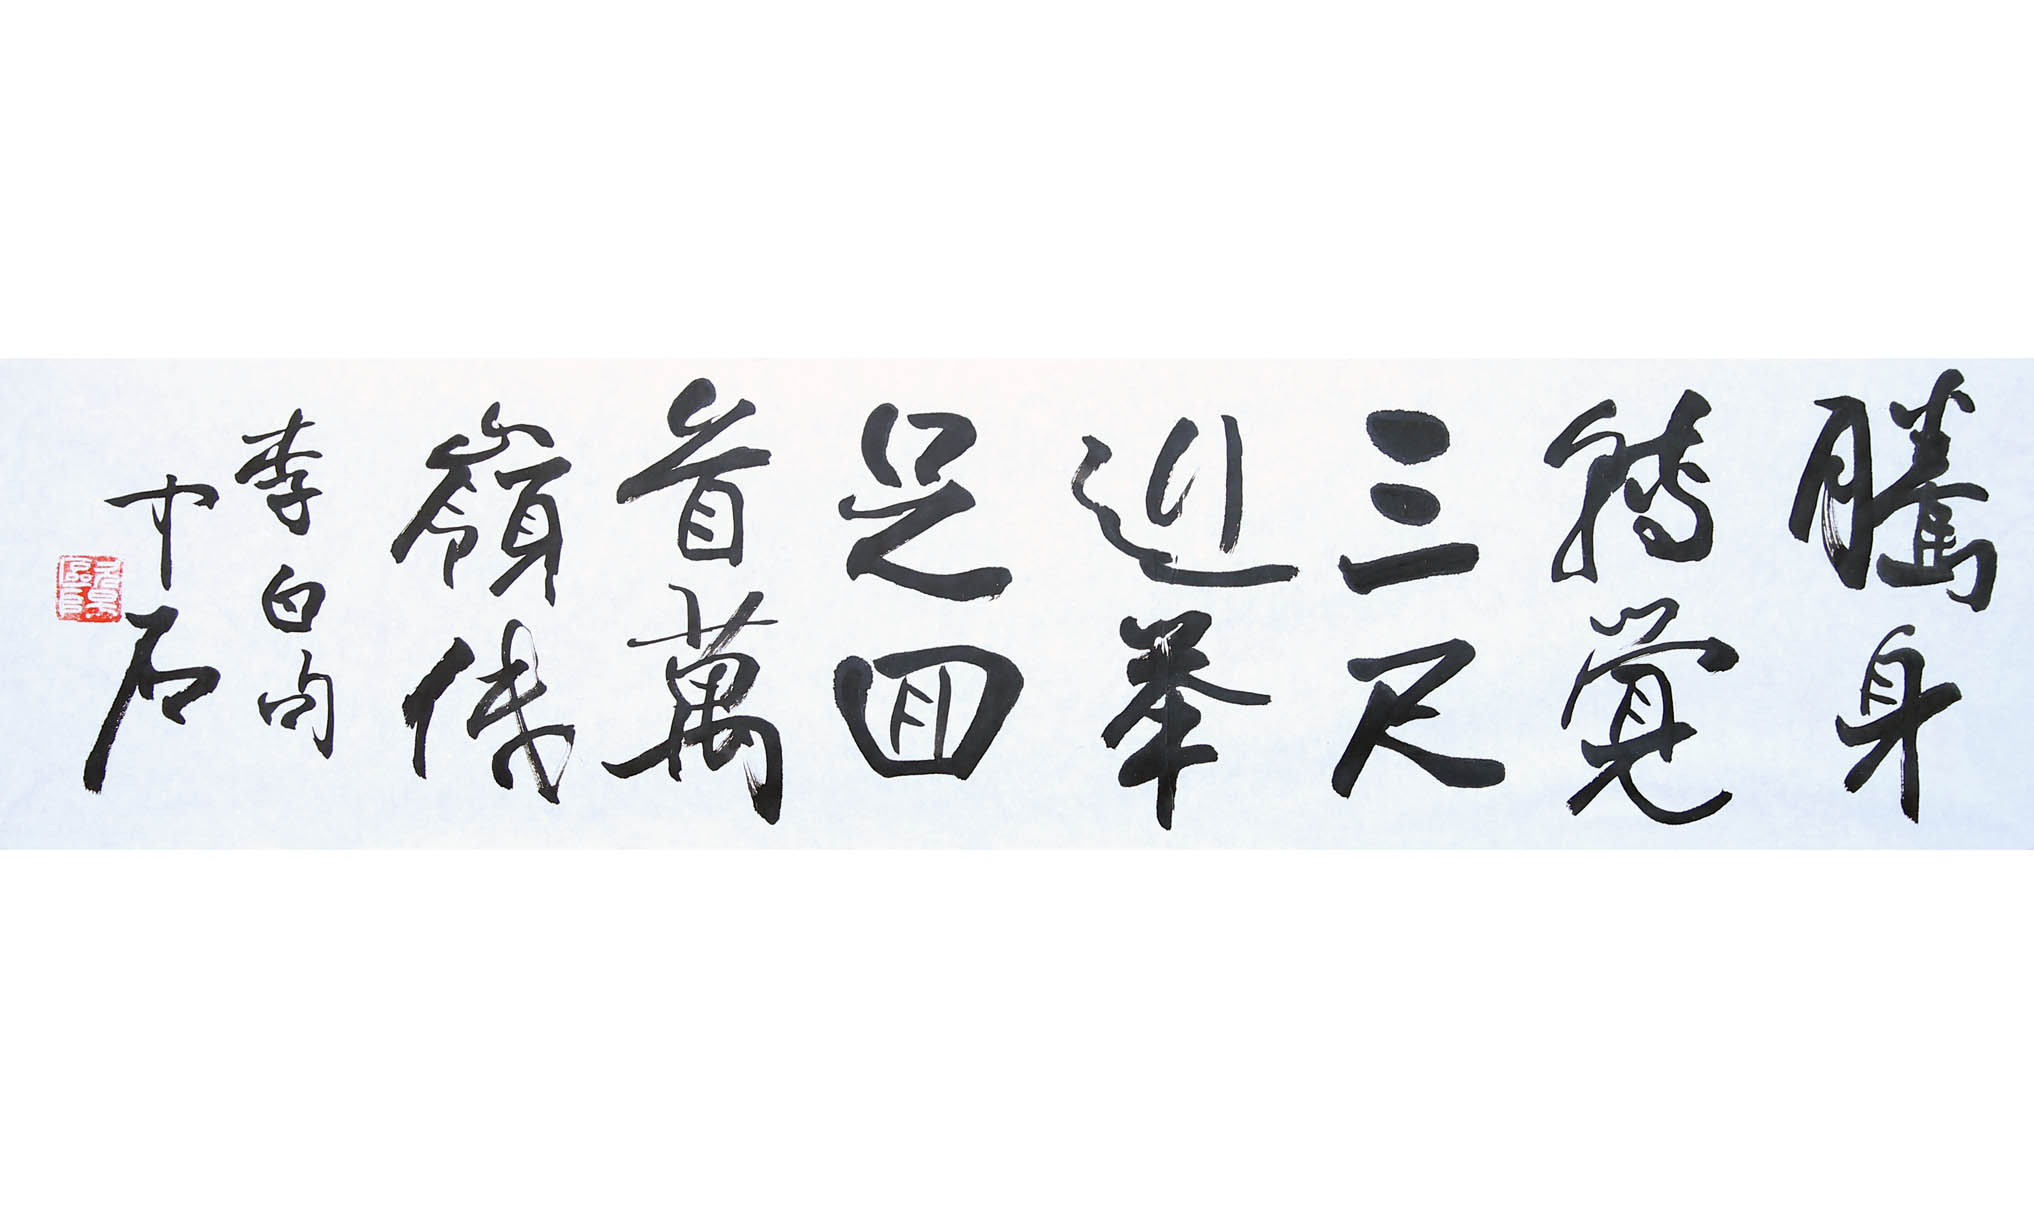 騰身
轉覺
三尺
近举
足回
首萬
嶺低
李白句
中石